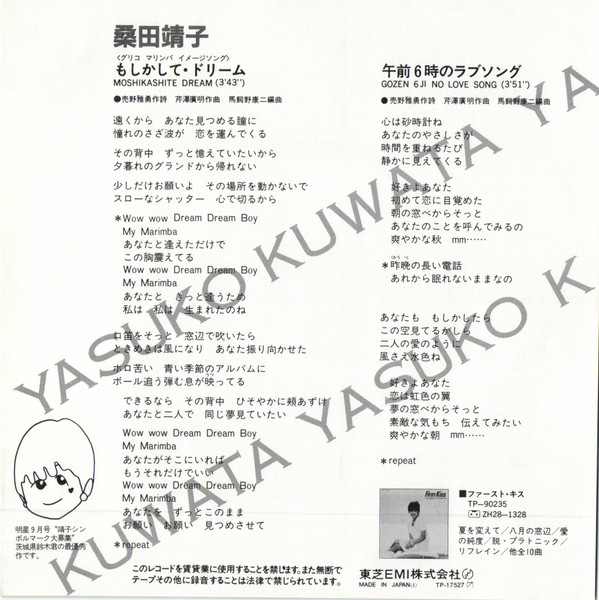 桑田靖子
〈グリコ マリンバ イメージソング〉
もしかして・ドリーム
MOSHIKASHITE DREAM (3'43'')
●売野雅勇作詩 芹澤廣明作曲 馬飼野康二編曲
遠くから あなた見つめる瞳に
憧れのさざ波が 恋を運んでくる
その背中 ずっと憶えていたいから
夕暮れのグランドから帰れない
少しだけお願いよ その場所を動かないで
スローなシャッター 心で切るから
*Wow wow Dream Dream Boy
My Marimba
あなたと逢えただけで
この胸震えてる
Wow wow Dream Dream Boy
My Marimba
あなたと きっと逢うため
私は 私は 生まれたのね
口笛をそっと 窓辺で吹いたら
ときめきは風になり あなた振り向かせた
ホロ苦い 青い季節のアルバムに
ボール追う弾む息が映ってる
できるなら その背中 ひそやかに頬あずけ
あなたと二人で 同じ夢見ていたい
Wow wow Dream Dream Boy
My Marimba
あなたがそこにいれば
もうそれだけでいい
Wow wow Dream Dream Boy
My Marimba
あなたを ずっとこのまま
お願い お願い 見つめさせて
*repeat
午前6時のラブソング
GOZEN 6JI NO LOVE SONG (3'51'')
●売野雅勇作詩 芹澤廣明作曲 馬飼野康二編曲
心は砂時計ね
あなたのやさしさが
時間を重ねるたび
静かに見えてくる
好きよあなた
初めて恋に目覚めた
朝の窓べからそっと
あなたのことを呼んでみるの
爽やかな秋 mm……
ゆうべ
*昨晩の長い電話
あれから眠れないままなの
あなたも もしかしたら
この空見てるかしら
二人の愛のように
風さえ水色ね
好きよあなた
恋は虹色の翼
夢の窓べからそっと
素敵な気もち 伝えてみたい
爽やかな朝 mm……
*repeat
明星9月号“靖子シン
ボルマーク大募集”
茨城県鈴木君の最優秀
作です。
First Kiss
■ファースト・キス
TP-90235
ZH28-1328
夏を変えて/八月の窓辺/愛
の純度/脱・プラトニック/
リフレイン/他全10曲
このレコードを賃貸業に使用することを禁じます。また無断で
テープその他に録音することは法律で禁じられています。
東芝EMI株式会社
MADE IN JAPAN TP-17527
YASUKO KUWATA YA
KUWATA YASUKO K